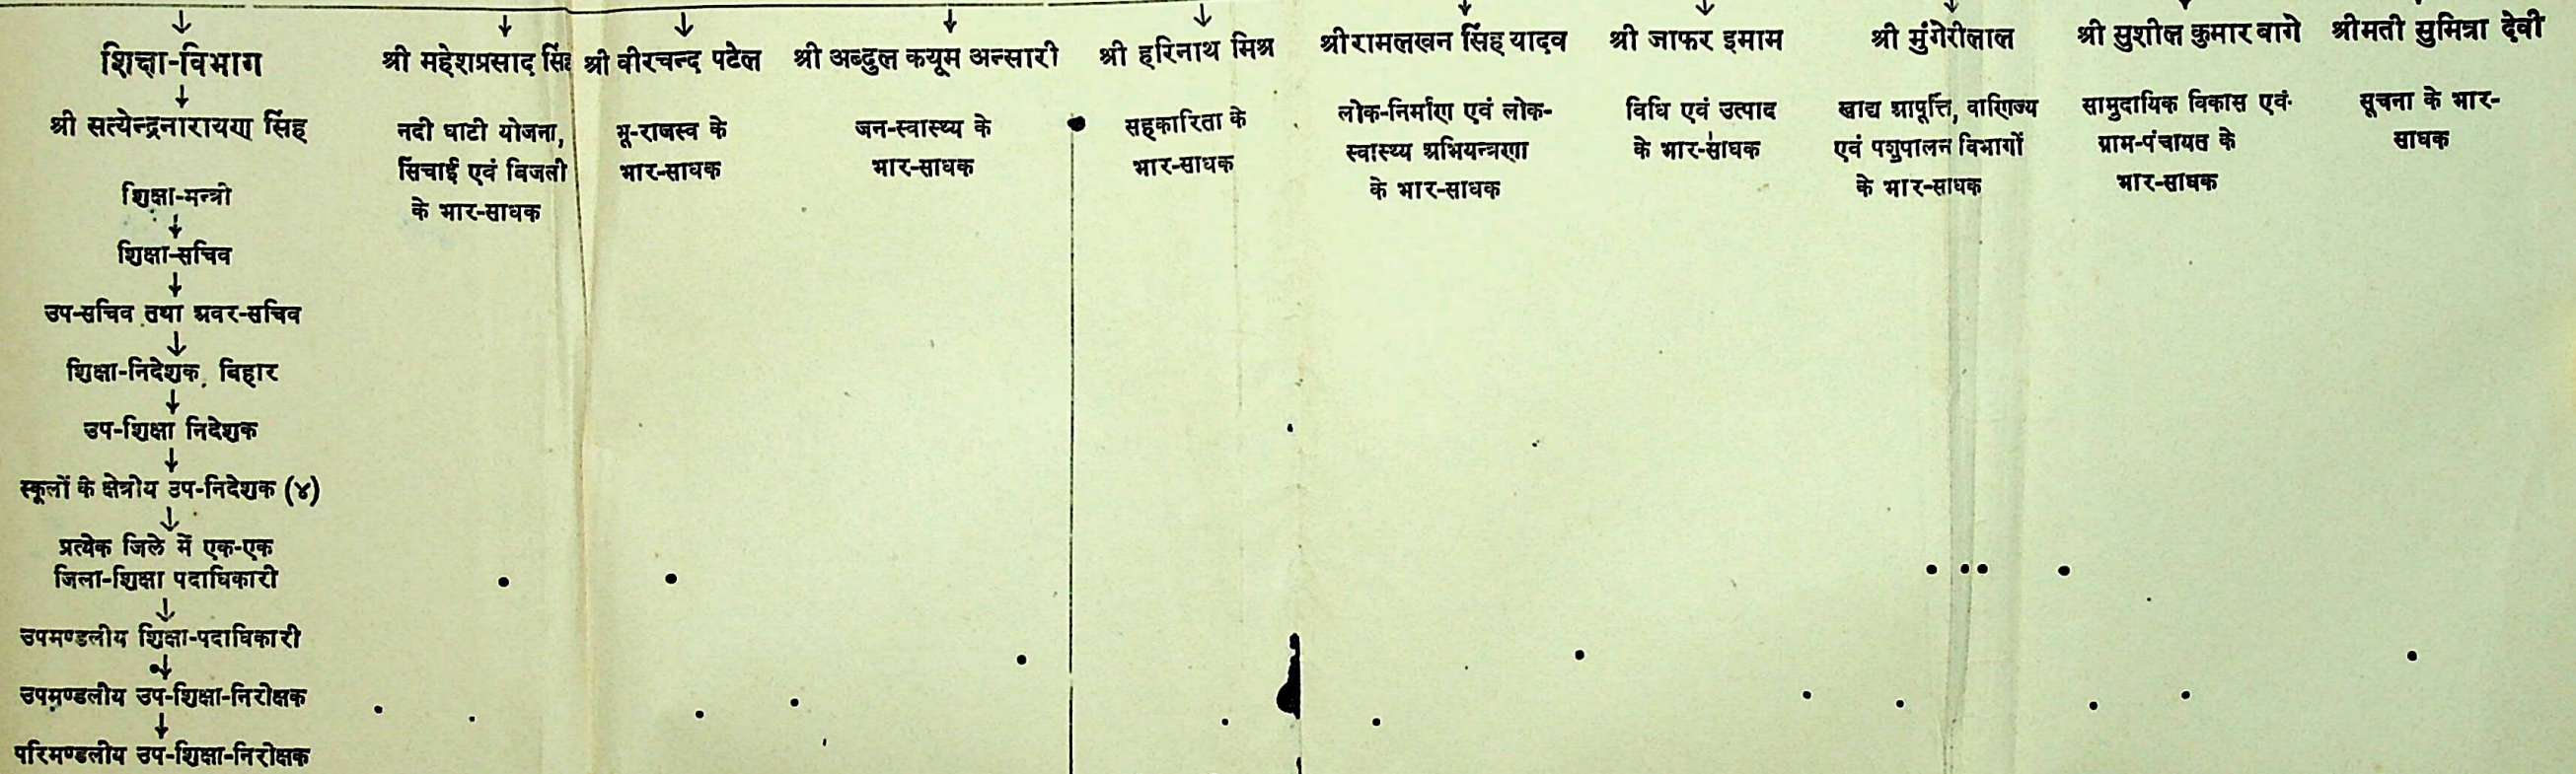 शिक्षा-विभाग
श्री सत्येन्द्रनारायण सिंह
शिक्षा-मन्त्री
शिक्षा-सचिव
उप-सचिव तथा अवर-सचिव
शिक्षा-निदेशक, बिहार
उप-शिक्षा निदेशक
स्कूलों के क्षेत्रीय उप-निदेशक (४)
प्रत्येक जिले में एक-एक
जिला-शिक्षा पदाधिकारी
उपमण्डलीय शिक्षा-पदाधिकारी
उपमण्डलीय उप-शिक्षा-निरीक्षक
परिमण्डलीय उप-शिक्षा-निरीक्षक
श्री महेशप्रसाद सिंह
नदी घाटी योजना,
सिंचाई एवं बिजली
के भार-साधक
श्री वीरचन्द पटेल
भू-राजस्व के
भार-साधक
श्री अब्दुल कयूम अन्सारी
जन-स्वास्थ्य के
भार-साधक
श्री हरिनाथ मिश्र
सहकारिता के
भार-साधक
श्री रामलखन सिंह यादव
लोक-निर्माण एवं लोक-
स्वास्थ्य अभियन्त्रणा
के भार-साधक
श्री जाफर इमाम
विधि एवं उत्पाद
के भार-साधक
श्री मुंगेरीलाल
खाद्य आपूर्त्ति, वाणिज्य
एवं पशुपालन विभागों
के भार-साधक
श्री सुशील कुमार बागे
सामुदायिक विकास एवं
ग्राम-पंचायत के
भार-साधक
श्रीमती सुमित्रा देवी
सूचना के भार-
साधक